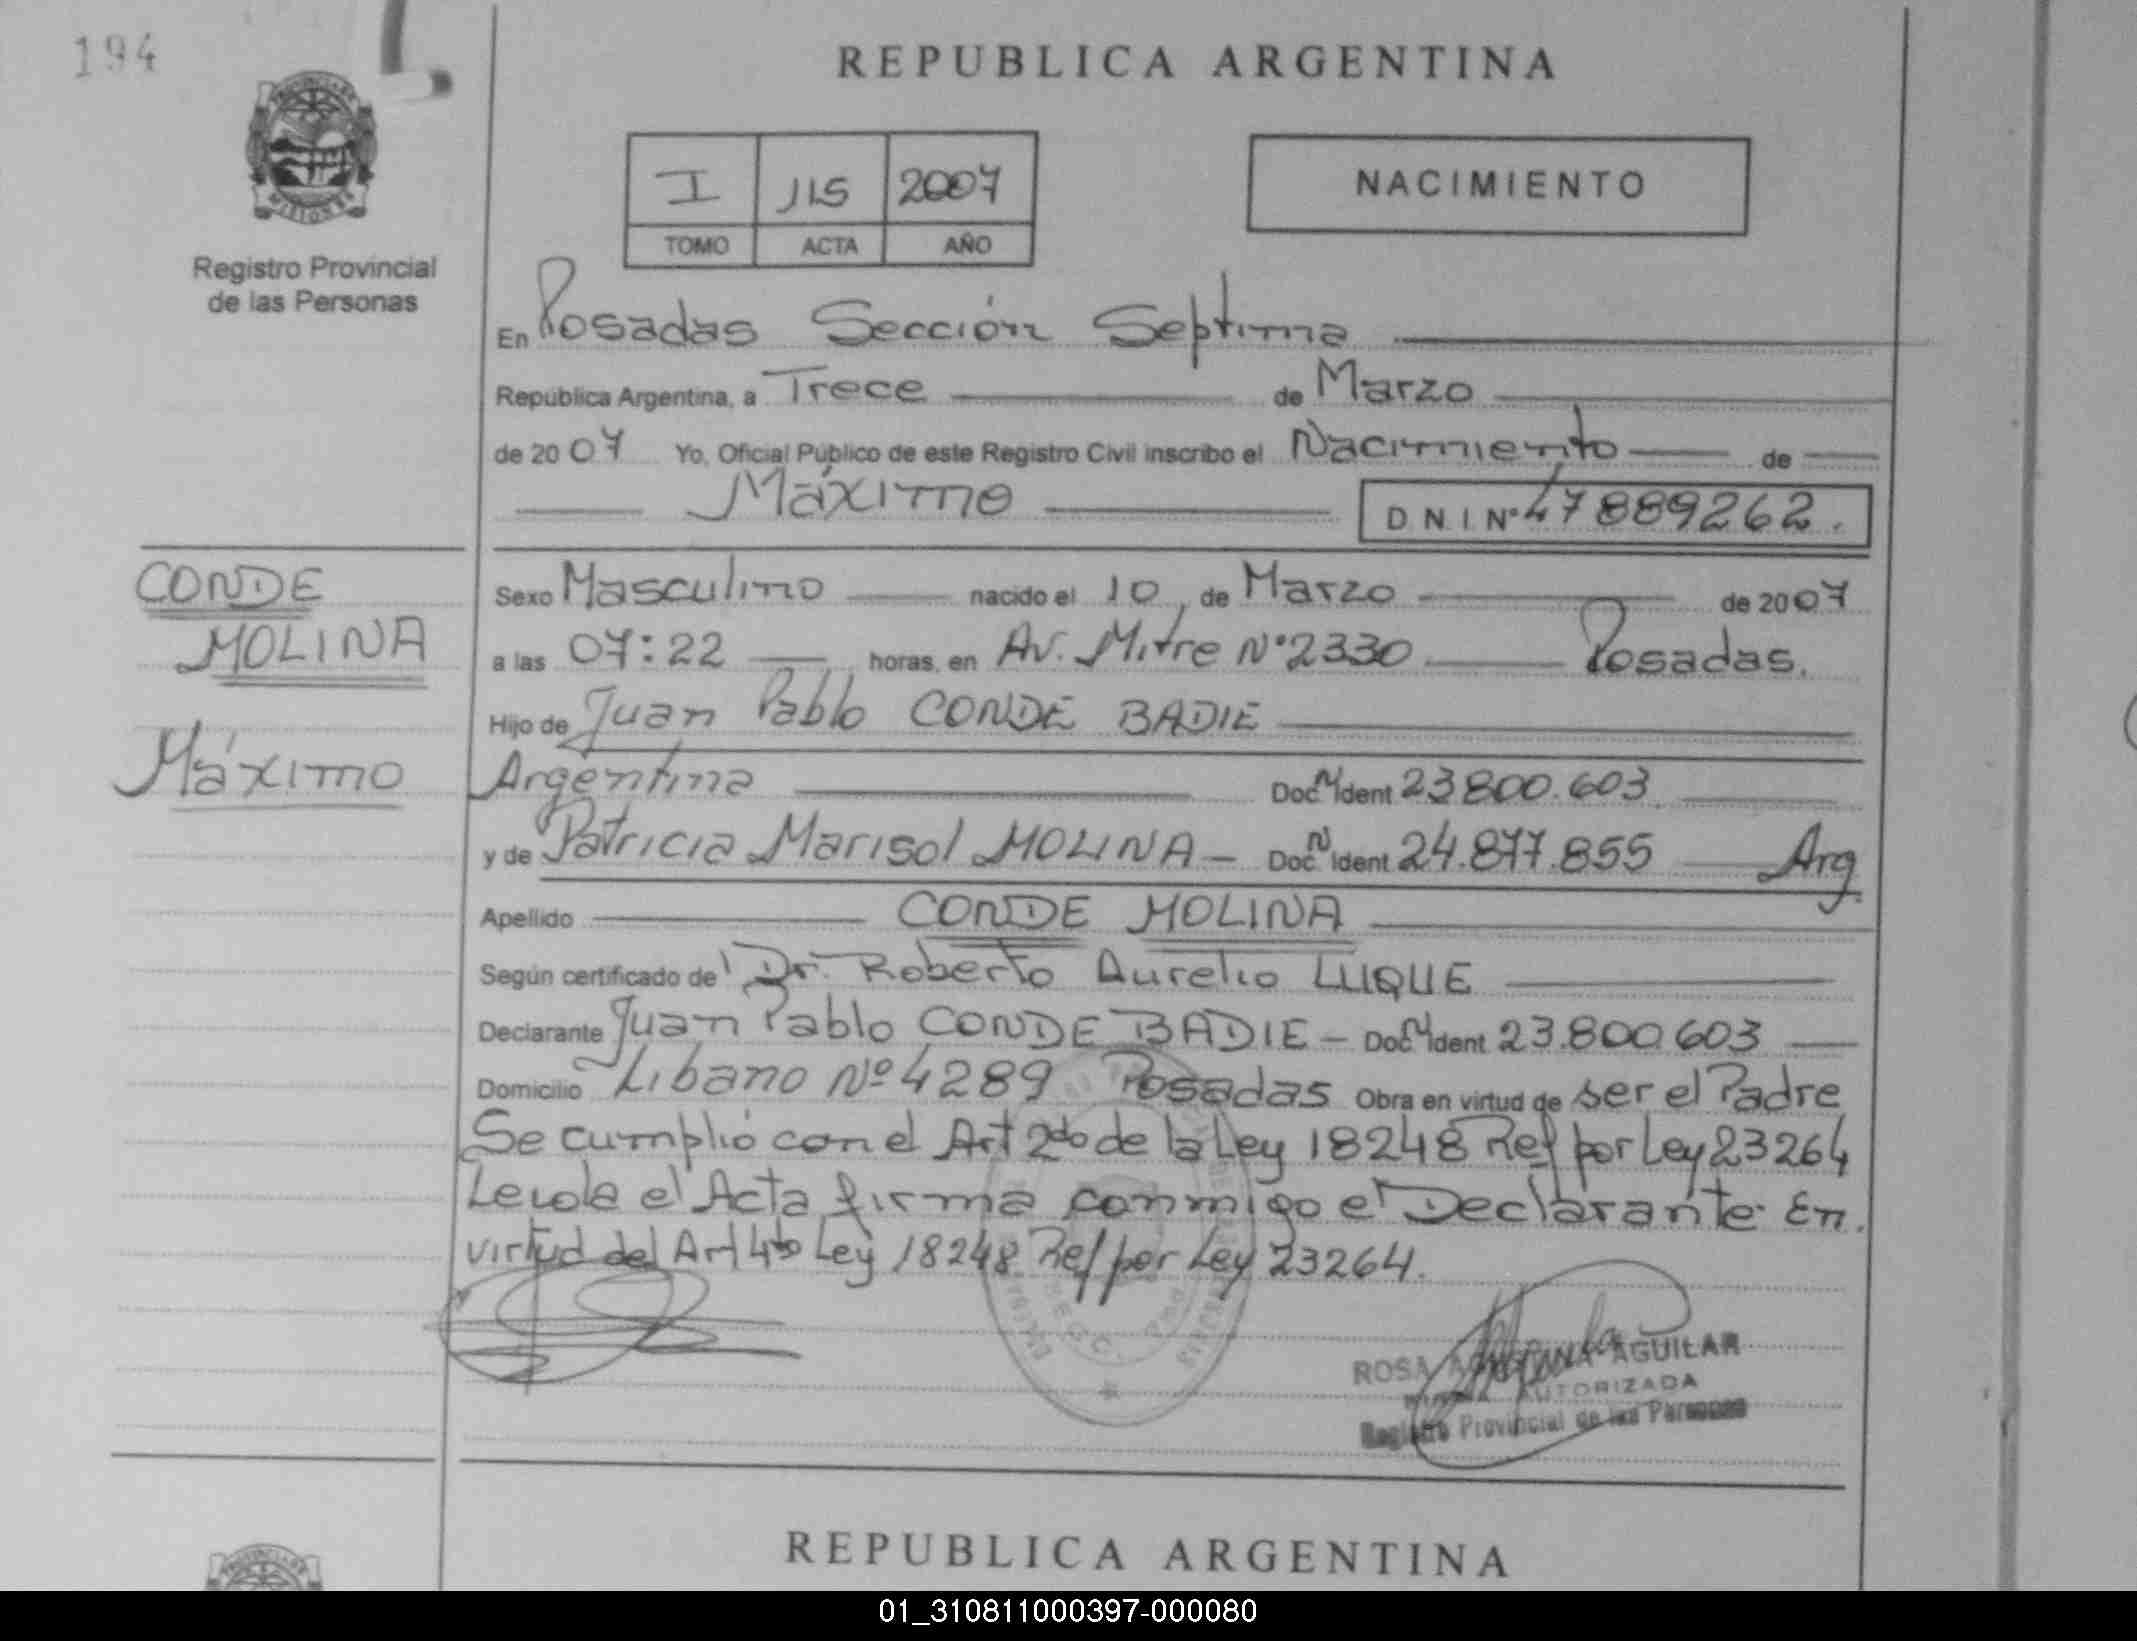 194
REPUBLICA ARGENTINA
PROVINCIA DE
MISIONES
Registro Provincial
de las Personas
I 115 2007
TOMO ACTA AÑO
NACIMIENTO
En Posadas Sección Septima
República Argentina, a Trece de Marzo
de 2007 Yo, Oficial Público de este Registro Civil inscribo el Nacimiento de
Máximo D N I Nº 47889262.
CONDE
MOLINA
Máximo
Sexo Masculino nacido el 10, de Marzo de 2007
a las 07:22 horas, en Av. Mitre Nº 2330 Posadas.
Hijo de Juan Pablo CONDE BADIE
Argentina Doc N Ident 23800.603
y de Patricia Marisol MOLINA - Doc N Ident 24.877.855 Arg.
Apellido CONDE MOLINA
Según certificado del Dr. Roberto Aurelio LUQUE
Declarante Juan Pablo CONDE BADIE - Doc N Ident 23.800.603
Domicilio Libano Nº 4289 Posadas Obra en virtud de ser el Padre
Se cumplió con el Art 2do de la Ley 18248 Ref por Ley 23264
Leida el Acta firma conmigo el Declarante En
virtud del Art 4to Ley 18248 Ref por Ley 23264.
ROSA AGUILAR
AUTORIZADA
Registro Provincial de las Personas
REPUBLICA ARGENTINA
01_310811000397-000080